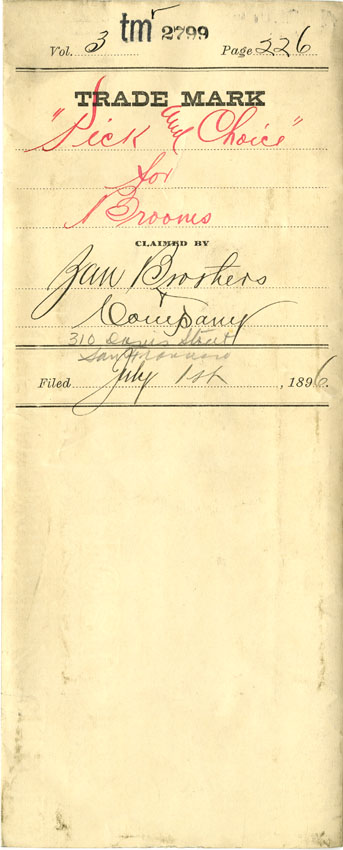 tm 2799
Vol. 3 Page 226
TRADE MARK
"Pick and Choice"
for
Brooms
CLAIMED BY
Zan Brothers
&
Company
310 Davis Street
San Francisco
Filed July 1st, 1896.